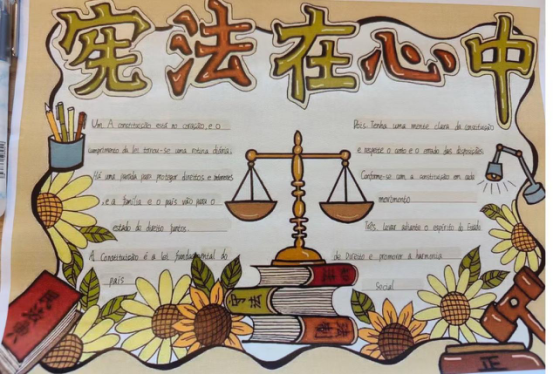 宪法在心中
Um A constituição está no coração, e o
cumprimento da lei tornou-se uma rotina diária.
Há uma parada para proteger direitos e interesses
, e a família e o país vão para o
estado de direito juntos.
A Constituição é a lei fundamental do
país
Dois. Tenha uma mente clara da constituição
e respeite o
Conforme-se com a constituição em cada
movimento
Três. Levar adiante o espírito do Estado
de Direito e promover a harmonia
Social
宪法
法制
民法典
正